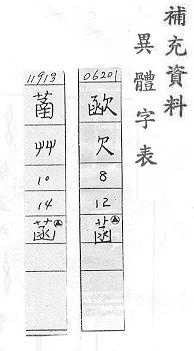 補充資料
異體字表
06201
欠
8
12
11913
艸
10
14